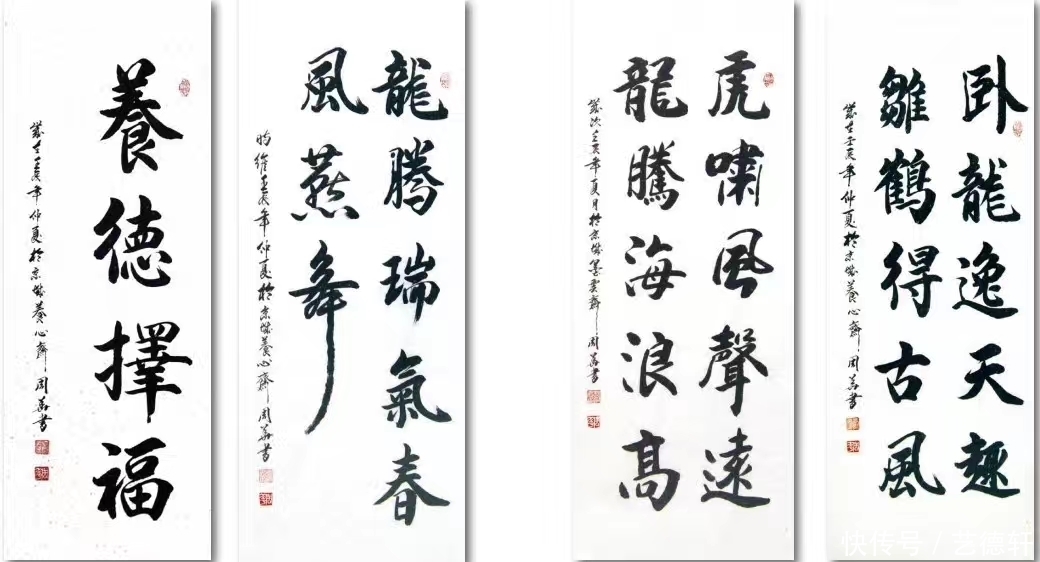 養德擇福
歲在壬辰年仲夏於京城養心齋周書
龍騰瑞氣春
風燕舞
時維壬辰年仲夏於京城養心齋周書
虎嘯風聲遠
龍騰海浪高
歲次壬辰年夏月於京城墨雲齋周書
卧龍逸天趣
雛鶴得古風
歲在壬辰年仲夏於京城養心齋周書
快传号 / 艺德轩